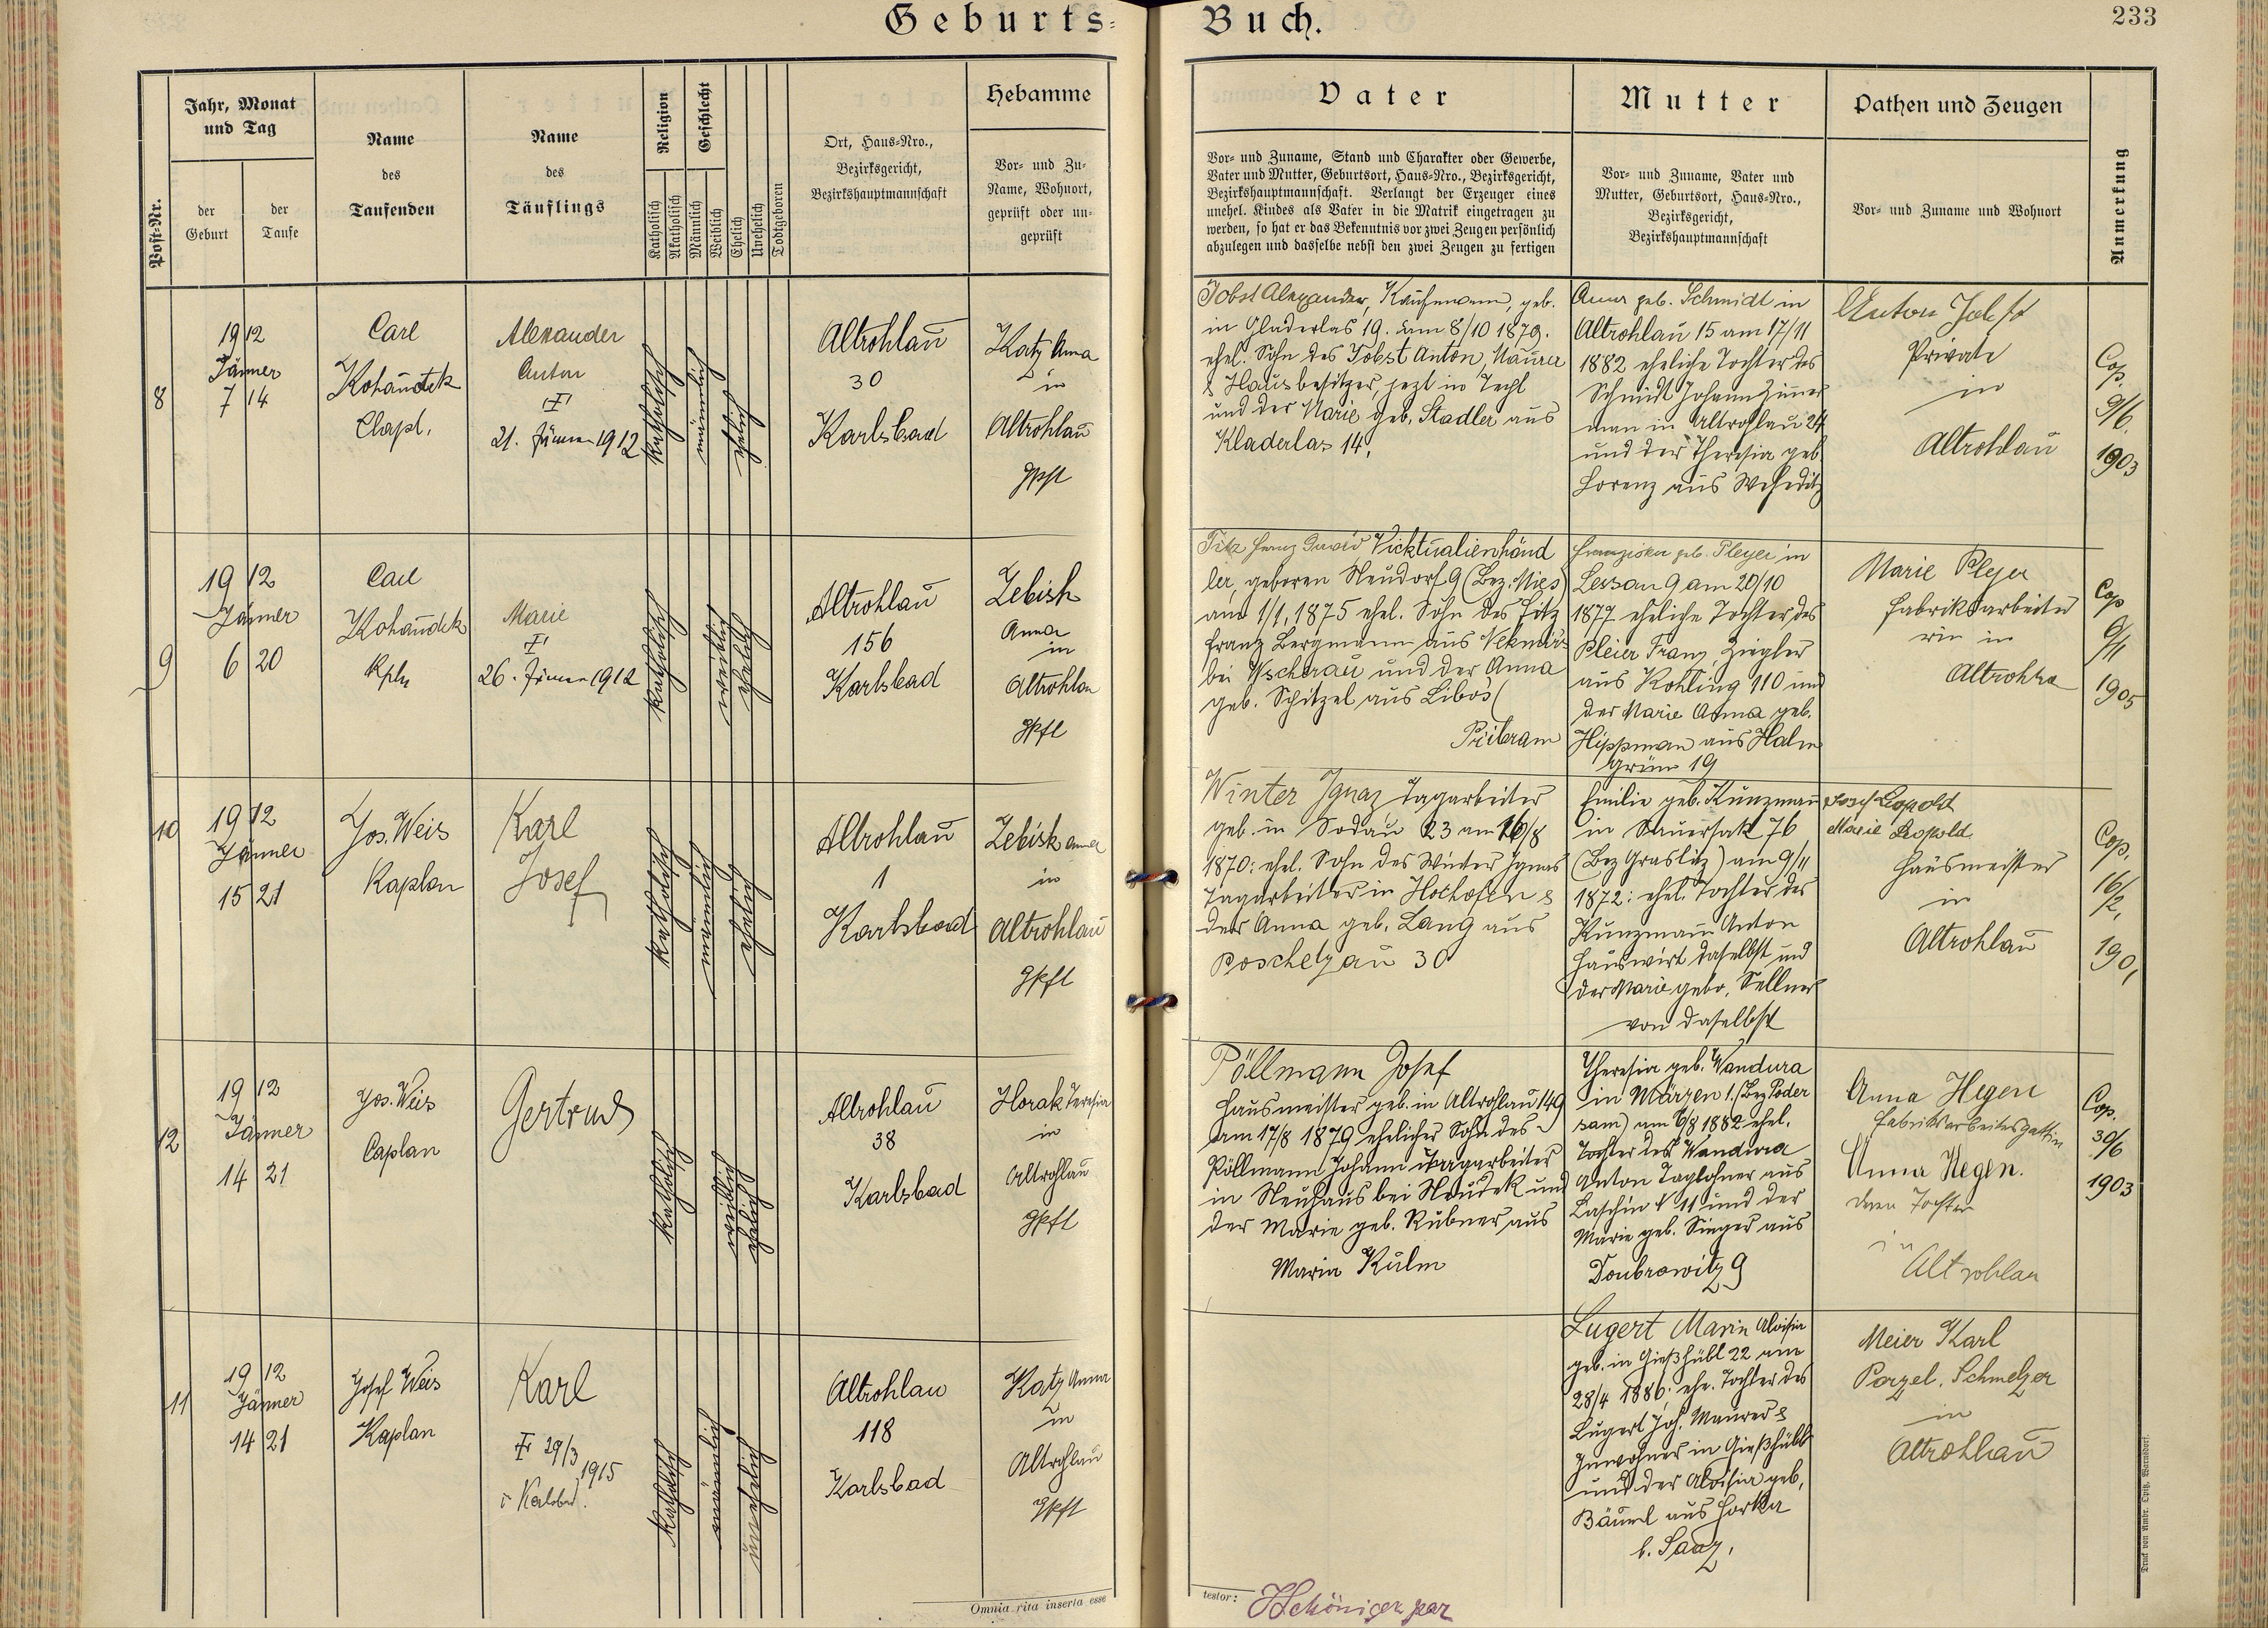 Geburts-
Buch.
233
Post-Nr.
Jahr, Monat
und Tag
der
Geburt
der
Taufe
Name
des
Taufenden
Name
des
Täuflings
Religion
Katholisch
Akatholisch
Geschlecht
Männlich
Weiblich
Ehelich
Unehelich
Todtgeboren
Ort, Haus-Nro.,
Bezirksgericht,
Bezirkshauptmannschaft
Hebamme
Vor- und Zu-
Name, Wohnort,
geprüft oder un-
geprüft
Vater
Vor- und Zuname, Stand und Charakter oder Gewerbe,
Vater und Mutter, Geburtsort, Haus-Nro., Bezirksgericht,
Bezirkshauptmannschaft. Verlangt der Erzeuger eines
unehel. Kindes als Vater in die Matrik eingetragen zu
werden, so hat er das Bekenntnis vor zwei Zeugen persönlich
abzulegen und dasselbe nebst den zwei Zeugen zu fertigen
Mutter
Vor- und Zuname, Vater und
Mutter, Geburtsort, Haus-Nro.,
Bezirksgericht,
Bezirkshauptmannschaft
Pathen und Zeugen
Vor- und Zuname und Wohnort
Anmerkung
8
1912
Jänner
7 14
Carl
Kohaudek
Capl.
Alexander
Anton
21. Jänner 1912
katholisch
männlich
ehelich
Altrohlau
30
Karlsbad
Katz Anna
in
Altrohlau
gpft
Jobst Alexander, Kaufmann, geb.
in Gladerlas 19. am 8/10 1879.
ehel. Sohn des Jobst Anton, Maurer
& Hausbesitzer, jezt in Techl
und der Marie geb. Stadler aus
Kladerlas 14,
Anna geb. Schmidt in
Altrohlau 15 am 17/11
1882 eheliche Tochter des
Schmidt Johann Zimer
man in Altrohlau 24
und der Theresia geb.
Lorenz aus Weheditz
Anton Jobst
Private
in
Altrohlau
Cop.
9/6.
1903
9
1912
Jänner
6 20
Carl
Kohaudek
Kpln
Marie
26. Jänner 1912
katholisch
weiblich
ehelich
Altrohlau
156
Karlsbad
Zebisch
Anna
in
Altrohlau
gpft
Fitz Franz David Vicktualienhänd
ler, geboren Neudorf 9 (Bez. Mies)
am 1/1, 1875 ehel. Sohn des Fitz
Franz Bergmann aus
bei Wscherau und der Anna
geb. Schitzel aus Libos (
Pribram
Franziska geb. Pleyer in
Lessau 9 am 20/10
1877 eheliche Tochter des
Pleier Franz, Ziegler
aus Kohling 110 und
der Marie Anna geb.
Hippman aus Halm
grün 19
Marie Pleyer
Fabriksarbeite
rin in
Altrohlau
Cop
6/11
1905
10
1912
Jänner
15 21
Jos. Weis
Kaplan
Karl
Josef
katholisch
männlich
ehelich
Altrohlau
1
Karlsbad
Zebisk Anna
in
Altrohlau
gpft
Winter Ignaz Tagarbeiter
geb. in Sodau 23 am 16/8
1870: ehel. Sohn des Winter Ignaz
Tagarbeiter in Hochofen &
der Anna geb. Lang aus
Poschetzau 30
Emilie geb. Kunzmann
in Sauersak 76
(Bez Graslitz) am 9/11
1872: ehel. Tochter des
Kunzmann Anton
Hauswirt daselbst und
der Marie gebo. Sellner
von daselbst
Josef Leopold
Marie Leopold
Hausmeister
in
Altrohlau
Cop.
16/2,
190,
12
1912
Jänner
14 21
Jos. Weis
Caplan
Gertrud
katholisch
weiblich
ehelich
Altrohlau
38
Karlsbad
Horak Teresia
in
Altrohlau
gpft
Pöllmann Josef
Hausmeister geb. in Altrohlau 149
am 17/8 1879 ehelicher Sohn des
Pöllmann Johann Tagarbeiter
in Neuhaus bei Neudek und
der Marie geb. Rubner aus
Maria Kulm
Theresia geb. Wandura
in Märzen 1. (Bez Poder
sam) am 6/8 1882 ehel.
Tochter des Wandura
Anton Taglohner aus
Laschin 11 und der
Marie geb. Singer aus
Doubrowitz 9
Anna Hegen
Fabriksarbeitersgattin
Anna Hegen.
deren Tochter
in
Altrohlau
Cop.
30/6
1903
11
1912
Jänner
14 21
Josef Weis
Kaplan
Karl
29/3
1915
i. Karlsbad.
katholisch
männlich
unehelich
Altrohlau
118
Karlsbad
Katz Anna
in
Altrohlau
gpft
Lugert Marin Aloisia
geb. in Gießhübl 22 am
28/4 1886: ehe. Tochter des
Lugert Joh. Maurer &
Inwohner in Gießhübl
und der Aloisia geb.
Bäuml aus Horka
b. Saaz.
Meier Karl
Porzel. Schmelzer
in
Altrohlau
Omnia rita inserta esse
testor:
Druck von Ambr. Opitz, Warnsdorf.